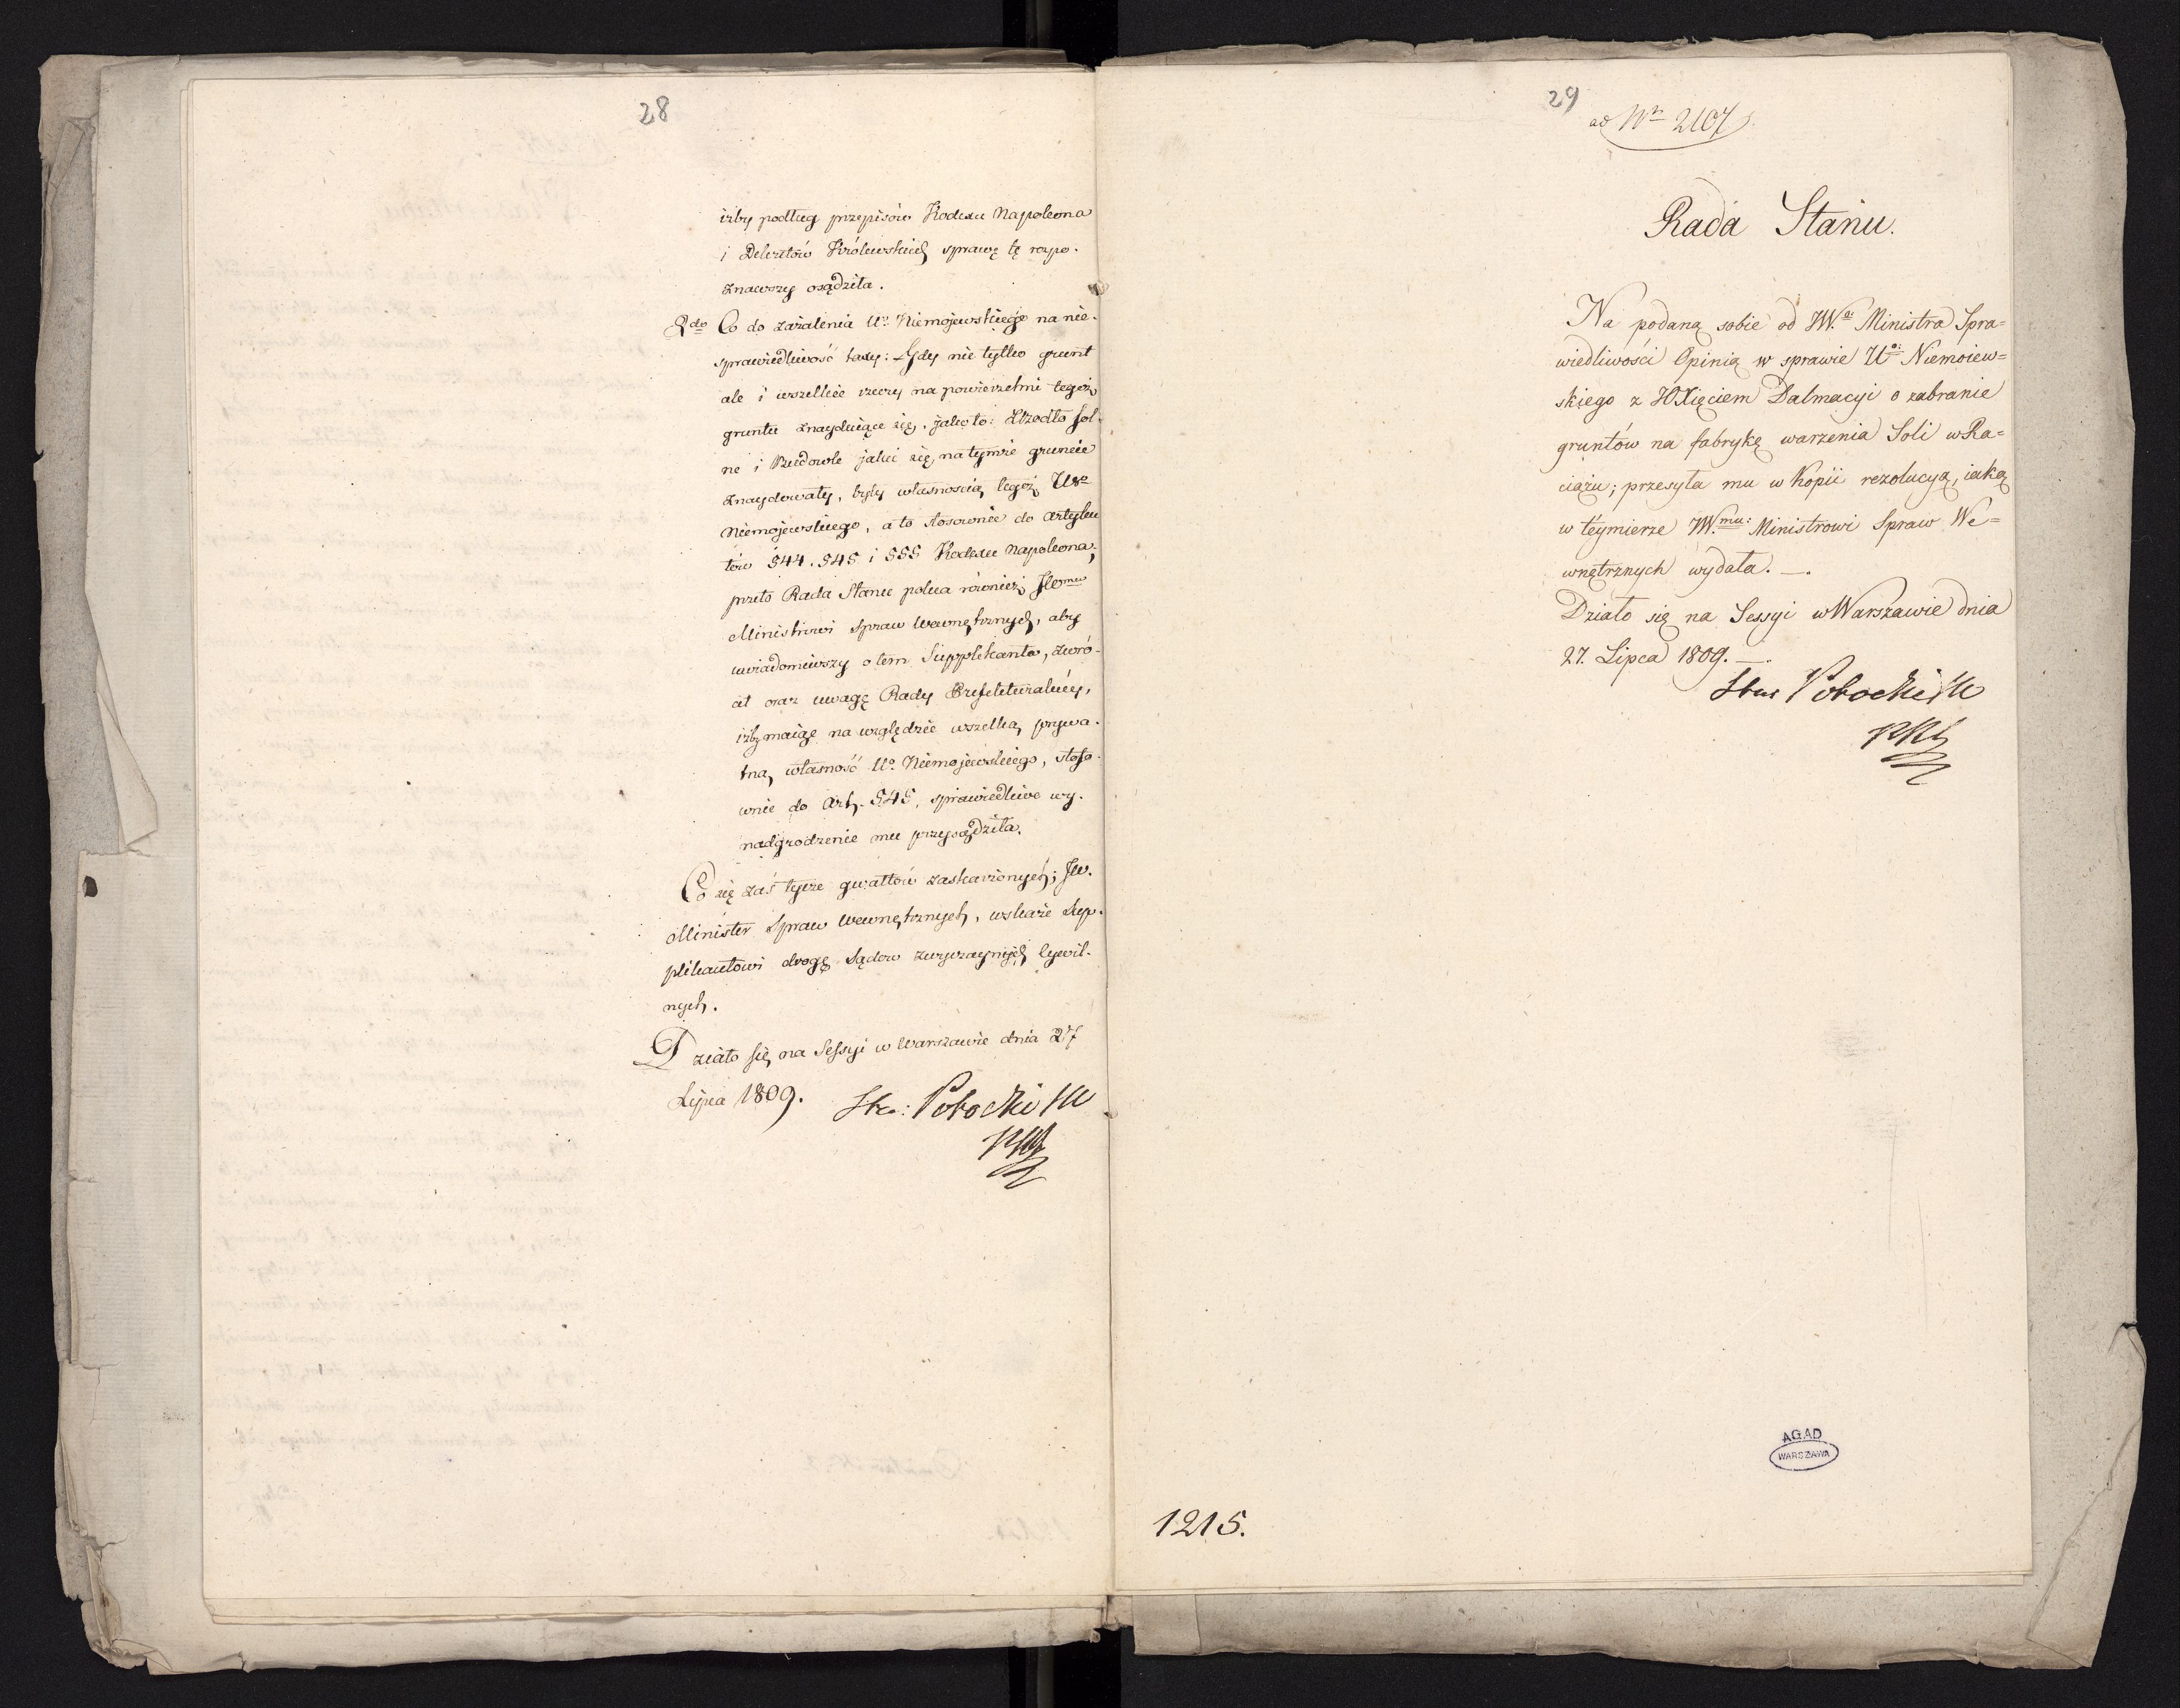 28
iżby podług przepisów Kodexu Napoleona
i Dekretów Królewskich sprawę tę rozpo-
znawszy osądziła.
2do Co do zażalenia Uo Niemojewskiego na nie-
sprawiedliwość taxy: Gdy nie tylko grunt
ale i wszelkie rzeczy na powierzchni tegoż
gruntu znayduiące się, jako to: Źrzódło sol-
ne i Budowle jakie się na tymże gruncie
znaydowały, były własnością tegoż Uo
Niemojewskiego, a to stosownie do Artyku-
łów 544. 545 i 555 Kodexu Napoleona;
przeto Rada Stanu poleca również JWmu
Ministrowi Spraw Wewnętrznych, aby
uwiadomiwszy o tem Supplikanta, zwró-
cił oraz uwagę Rady Prefekturalney,
iżby maiąc na względzie wszelką prywa-
tną własność Uo Niemojewskiego, stoso-
wnie do Art. 545, sprawiedliwe wy-
nadgrodzenie mu przysądziła.
Co się zaś tycze gwałtów zaskarżonych; JW.
Minister Spraw Wewnętrznych, wskaże Sup-
plikantowi drogę Sądow zwyczaynych Cywil-
nych.
Działo się na Sessyi w Warszawie dnia 27
Lipca 1809. Sta: Potocki
29
ad Nr 2107
Rada Stanu.
Na podaną sobie od JW.a Ministra Spra=
wiedliwości Opinią w sprawie Uo: Niemoiew=
skiego z JOXięciem Dalmacyi o zabranie
gruntów na fabrykę warzenia Soli w Ra=
ciążu; przesyła mu w Kopii rezolucyą, iaką
w teymierze JW.mu: Ministrowi Spraw We=
wnętrznych wydała. —.
Działo się na Sessyi w Warszawie dnia
27. Lipca 1809. —.
Stan Potocki
AGAD
WARSZAWA
1215.